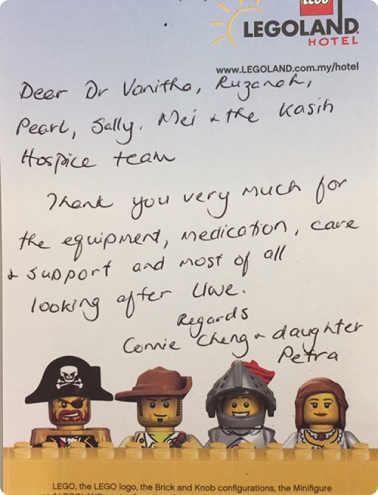 LEGO
LEGOLAND
HOTEL
www.LEGOLAND.com.my/hotel
Dear Dr Vanitha, Ruzanah,
Pearl, Sally, Mei & the Kasih
Hospice team
Thank you very much for
the equipment, medication, care
& support and most of all
looking after Uwe.
Regards
Connie Cheng & daughter
Petra
LEGO, the LEGO logo, the Brick and Knob configurations, the Minifigure
and LEGOLAND